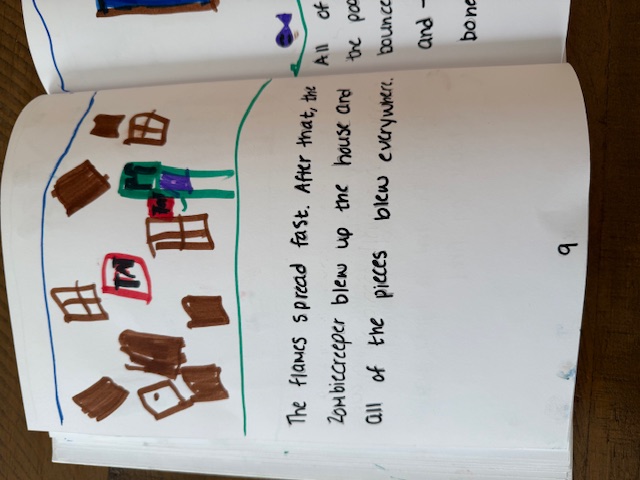 All of
the poo
bounce
and
bone
TNT
TNT
The flames spread fast. After that, the
Zombiecreeper blew up the house and
all of the pieces blew everywhere.
9